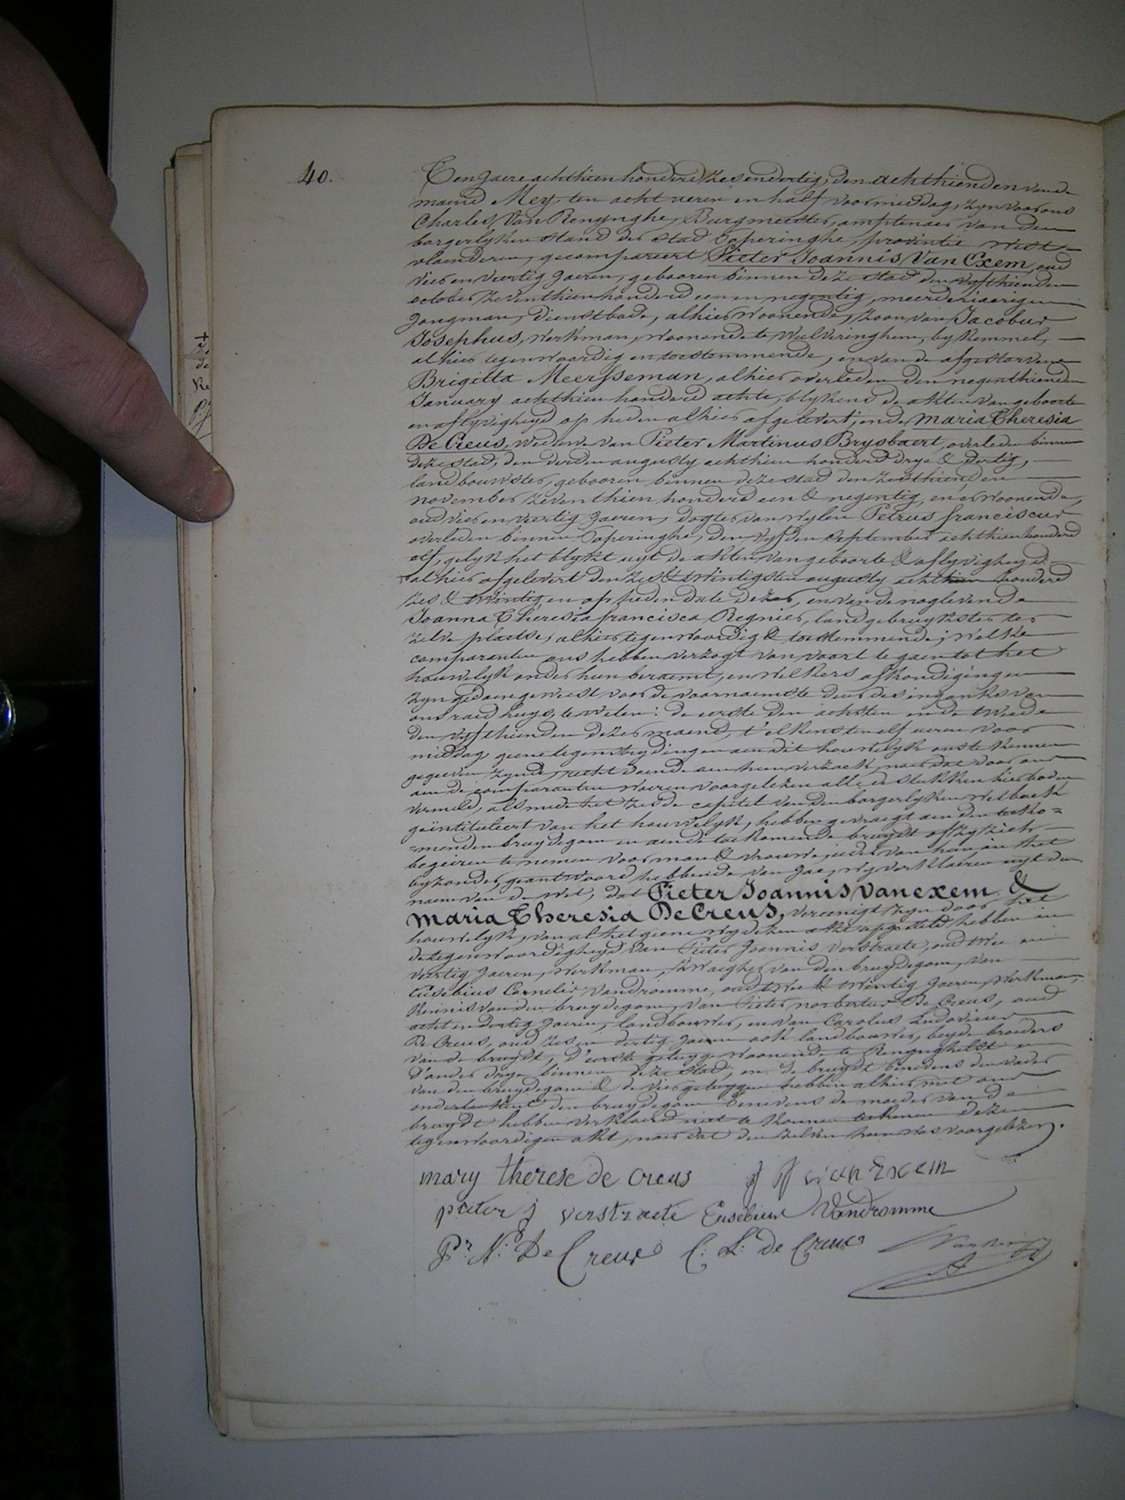 40.
Ten Jaere achthien honderd zesendertig, den achthienden van de
maend Mey, ten acht uren en half voormiddag, zyn voor ons
Charles Van Renynghe, Burgmeester, amptenaer van den
borgerlyken stand der stad Poperinghe, provintie West-
vlaenderen, gecompareert Pieter Joannis Van Exem, oud
vier en veertig Jaeren, gebooren binnen deze stad den vyfthienden
october zeventhien honderd een en negentig, meerderjaerigen
Jongman, dienstbode, alhier woonende, zoon van Jacobus
Josephus, werkman, woonende te Wulveringhem, by Kemmel,
alhier tegenwoordig en toestemmende, en van de afgestorvene
Brigitta Meersseman, alhier overleden den negenthienden
January achthien honderd achte, blykens de akten van geboorte
en aflyvigheyd op heden alhier afgelevert; ende Maria Theresia
De Creus, weduwe van Pieter Martinus Brysbaert, overleden binnen
deze stad, den derden augusty achthien honderd drye & dertig,
landbouwster, gebooren binnen deze stad den zesthienden
november zeventhien honderd een & negentig, en er woonende,
oud vier en veertig Jaeren, dogter van wylen Petrus franciscus
overleden binnen Poperinghe, den vyfden september achthien honderd
elf, gelyk het blykt uyt de akten van geboorte & aflyvigheyd
alhier afgelevert den zes & twintigsten augusty achthien honderd
zes & twintig en op heden date dezer, en van de nog levende
Joanna Theresia francisca Regnier, landgebruykster ter
zelve plaetse, alhier tegenwoordig & toestemmende; welke
comparanten ons hebben verzogt van voort te gaen tot het
houwelyk onder hun beraemt, en welkers afkondigingen
zyn gedaen geweest voor de voornaemste deur des ingangs van
ons raedhuys, te weten: de eerste den achsten en de tweede
den vyfthienden dezer maend, t'elkens ten elf uren voor
middag, geene tegenstrydingen aen dit houwelyk ons te kennen
gegeven zynde, recht doende aen hun verzoek, naer dat door ons
aen de comparanten waeren voorgelezen alle de stukken hier boven
vermeld, als mede het zesde capittel van den borgerlyken Wetboek
geïntituleert van het houwelyk, hebben gevraegt aen den toeko=
=menden bruydegom en aen de toekomende bruydt of zy zich
begeeren te nemen voor man & vrouwe, ieder van hun in het
byzonder geantwoord hebbende van Jae, wy verklaeren uyt den
naem van de Wet, dat Pieter Joannis Vanexem &
Maria Theresia DeCreus, vereenigt zyn door het
houwelyk, van al het geene wy dezen akte opgesteld hebben in
de tegenwoordigheyd van Pieter Joannis Verstraete, oud twee en
veertig Jaeren, werkman, Zwaegher van den bruydegom, van
Eusebius Cornelis Vandromme, oud twee & twintig Jaeren, werkman,
Kennis van den bruydegom, van Pieter norbertus De Creus, oud
acht en dertig Jaeren, landbouwer, en van Carolus Ludovicus
De Creus, oud zes en dertig Jaeren ook landbouwer, beyde broeders
van de bruydt, d'eerste getuyge woonende te Renynghelst en
d'ander drye binnen deze stad, en de bruydt benevens den vader
van den bruydegom & de vier getuygen hebben alhier met ons
onderteekent den bruydegom benevens de moeder van de
bruydt hebben verklaerd niet te konnen teekenen dezen
tegenwoordigen akt, naer dat den zelven hun was voorgelezen.
mary therese de creus J J van Exem
pieter j verstraete Eusebius Vandromme
Pr. N: De Creus C: L: de Creus